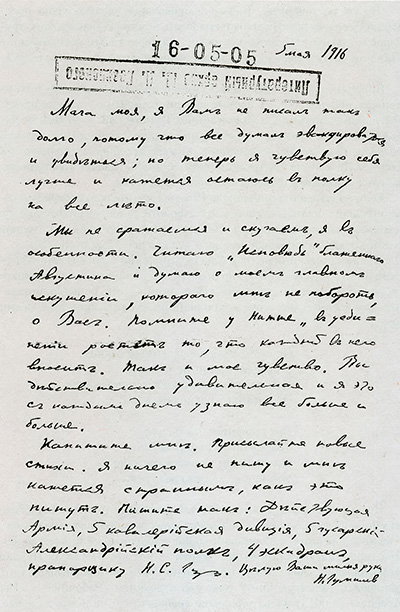 16-05-05 5 мая 1916
Литературный архив М. Л. Лозинского
Мага моя, я Вамъ не писал так
долго, потому что все думал эвакуироваться
и увидѣться; но теперь я чувствую себя
лучше и кажется остаюсь в полку
на все лѣто.
Мы не сражаемся и скучаем, я в
особенности. Читаю „Исповѣдь“ блаженнаго
Августина и думаю о моем главном
искушеніи, котораго мнѣ не побороть,
о Вас. Помните у Нитше „в уеди-
неніи растет то, что каждый в него
вносит. Так и мое чувство. Вы
дѣйствительно удивительная и я это
с каждым днем узнаю все больше и
больше.
Напишите мнѣ. Присылайте новые
стихи. Я ничего не пишу и мнѣ
кажется странным, какъ это
пишут. Пишите так: Дѣйствующая
Армія, 5 кавалерійская дивизія, 5 гусарскій
Александрійскій полк, 4 эскадрон,
прапорщику Н. С. Гум. Цѣлую Ваши милыя руки
Н. Гумилев